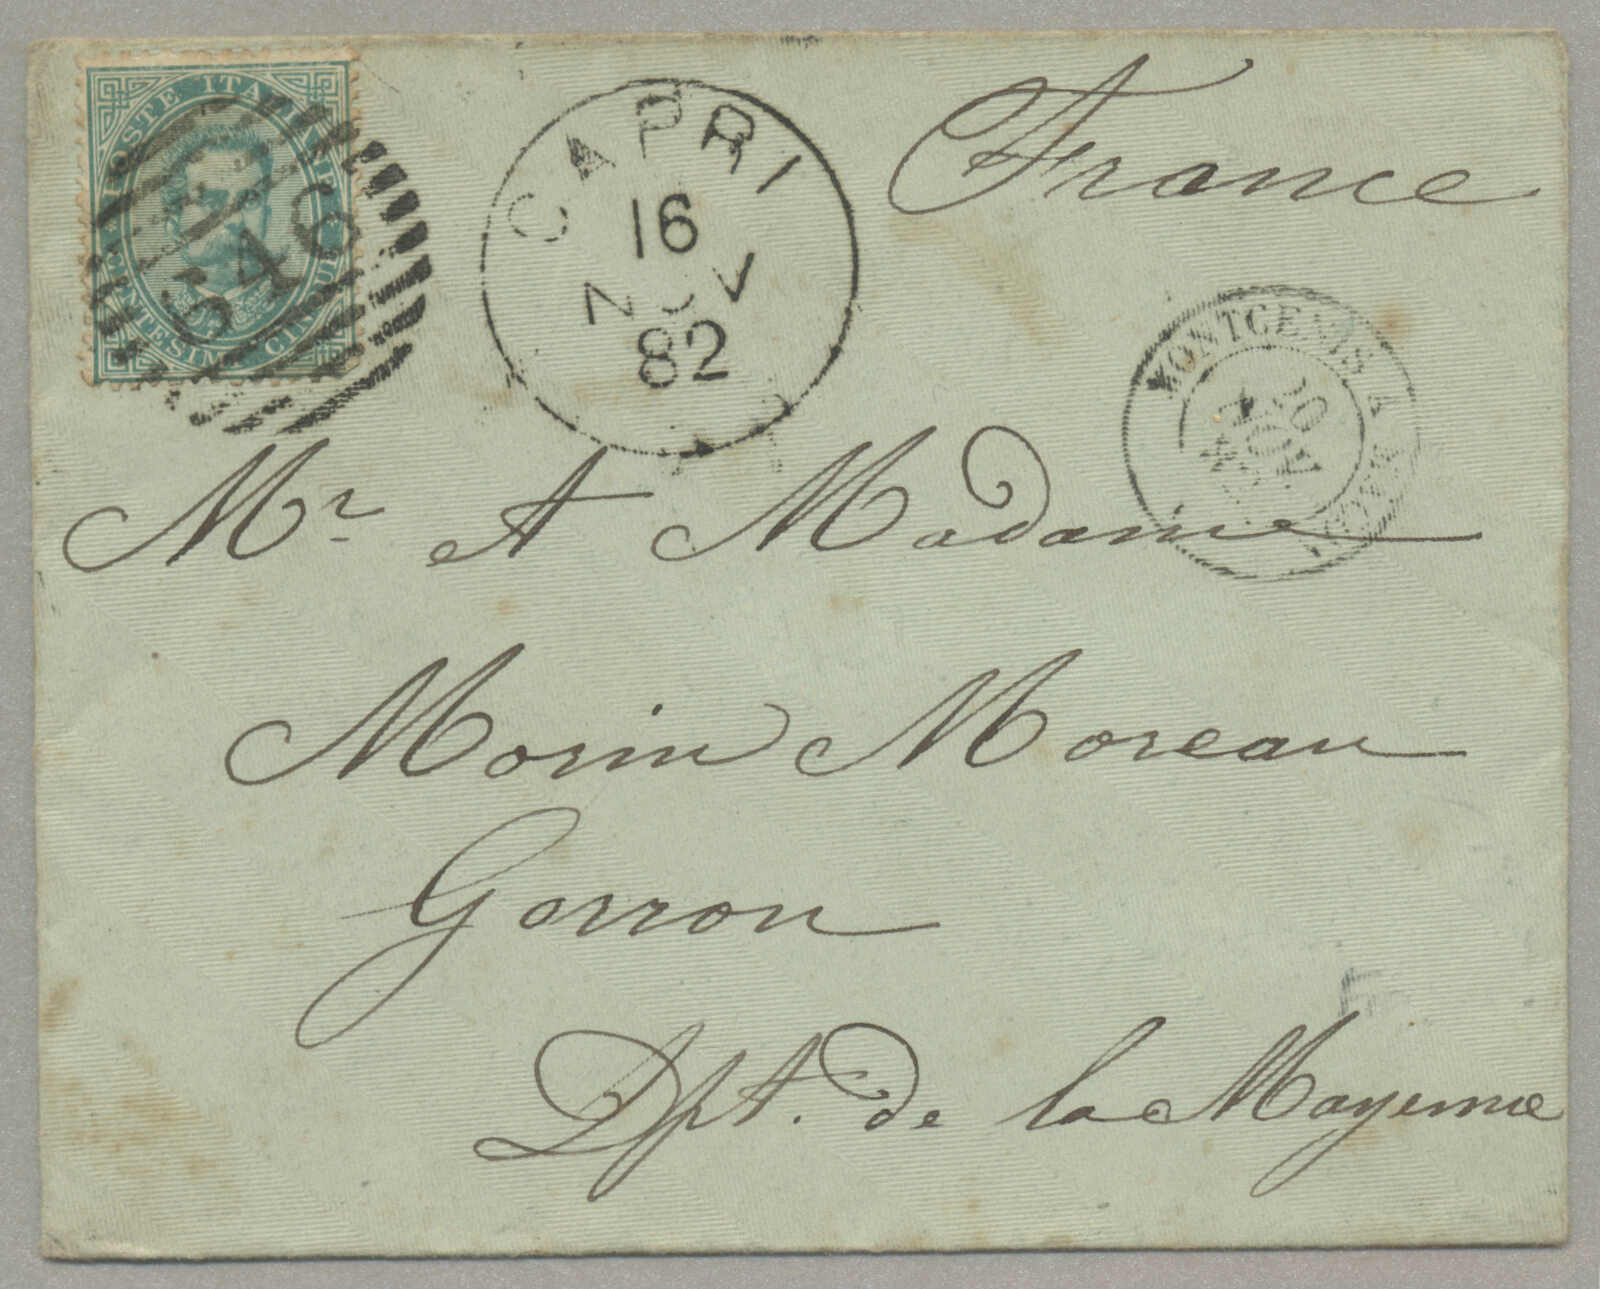 POSTE ITALIANE
CENTESIMI CINQUE
CAPRI
16
NOV
82
France
MONTCENIS A
NOV
Mr et Madame
Morin Moreau
Gorron
Dpt. de la Mayenne